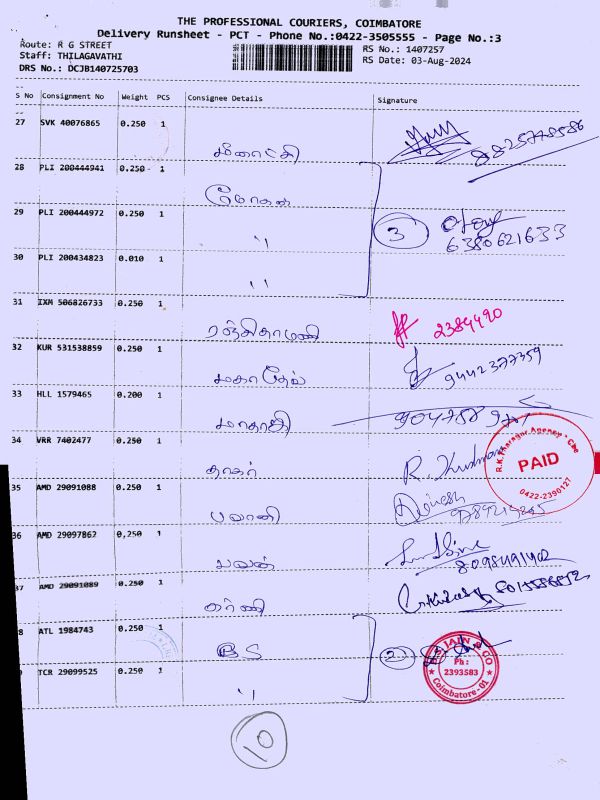 THE PROFESSIONAL COURIERS, COIMBATORE
Delivery Runsheet - PCT - Phone No.:0422-3505555 - Page No.:3
Route: R G STREET RS No.: 1407257
Staff: THILAGAVATHI RS Date: 03-Aug-2024
DRS No.: DCJB140725703
S No Consignment No Weight PCS Consignee Details Signature
27 SVK 40076865 0.250 1
மீனாட்சி
28 PLI 200444941 0.250 1
மோகன்
29 PLI 200444972 0.250 1
"
3
6380621633
30 PLI 200434823 0.010 1
"
31 IXM 506826733 0.250 1
2384490
32 KUR 531538859 0.250 1
மகாதேவ்
9442377359
33 HLL 1579465 0.200 1
34 VRR 7402477 0.250 1
R.K.Tharagar Agency * Cbe
PAID
0422-2390127
R. Kumar
35 AMD 29091088 0.250 1
பவானி
36 AMD 29097862 0,250 1
பவன்
37 AMD 29091089 0.250 1
8 ATL 1984743 0.250 1
BS
2
JAIN & CO
Ph :
2393583
Coimbatore-01
TCR 29099525 0.250 1
"
10